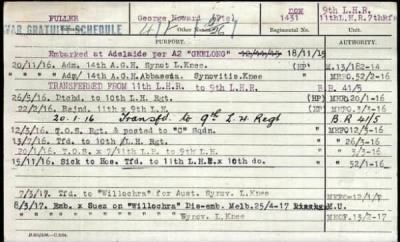 FULLER George Howard (Pte) DOW 1431 9th L.H.R. 11th.L.H.R.7thRft
WAR GRATUITY SCHEDULE
Surname Other Names Regimental No. Unit
PURPORT. AUTHORITY.
Embarked at Adelaide per A2 "GEELONG" 12/11/15 18/11/15
20/11/16. Adm. 14th A.G.H. Synot L.Knee (HP) M.13/182-14
" " Adm/ 14th A.G.H.Abbassia. Synovitis.Knee MEFO.52/2-16
TRANSFERRED FROM 11th L.H.R. to 9th L.H.R. B.R. 41/5
26/5/16. Dtchd. to 10th L.H. Rgt. (HP) MEFO.20/1-16
22/2/16. Rejnd. 11th x 9th L.H. (HP) MEFO.3/3-16
20.1.16 Transfd to 9th L.H Regt B.R 41/5
12/3/16. T.O.S. Rgt. & posted to "C" Sqdn. MEFO12/3-16
13/5/16. Tfd. to 10th/L.H. Rgt. " 26/3-16
20/1/16. T.O.S. x 7/11th L.H. to 9th L.H. " 3/2-16
15/11/16. Sick to Hos. Tfd. to 11th L.H.R x 10th do. " 52/1-16
7/3/17. Tfd. to "Willochra" for Aust. Synov. L.Knee MEFO.12/1-17
8/3/17. Emb. x Suez on "Willochra" Dis-emb. Melb.25/4-17 M.U.
Synov. L.Knee MEOF.13/2-17